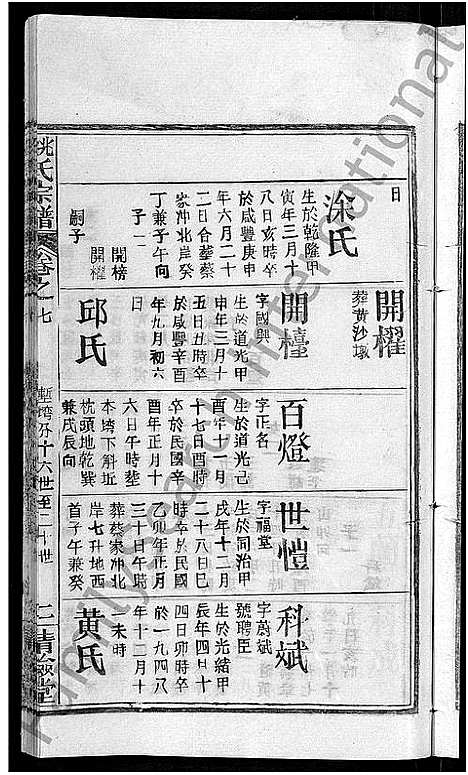 日
涂氏
生於乾隆甲
寅年三月十
八日亥時卒
於咸豐庚申
年六月二十
二日合葬蔡
家冲北岸癸
丁兼子午向
子一
開榜
嗣子
開櫂
開櫂
葬黄沙墩
開檯
字國興
生於道光甲
申年三月十
五日丑時卒
於咸豐辛酉
年九月初六
日
邱氏
百燈
字正名
生於道光己
酉年十一月
十七日酉時
卒於民國辛
酉年正月十
六日午時塟
本垮下斛坵
枕頭地乾巽
兼戌辰向
世愷
字福堂
生於同治甲
戌年十二月
二十八日巳
時卒於民國
乙卯年正月
三十日午時
葬蔡家冲北
岸七升地西
首子午兼癸
科斌
字蔚斌
號聘臣
生於光緒甲
辰年四日十
四日卯時卒
於一九四八
年十二月十
一未時
黄氏
姚氏宗譜
卷之
七
塹垮分十六世至二十世
二
精益堂
FamilySearch International